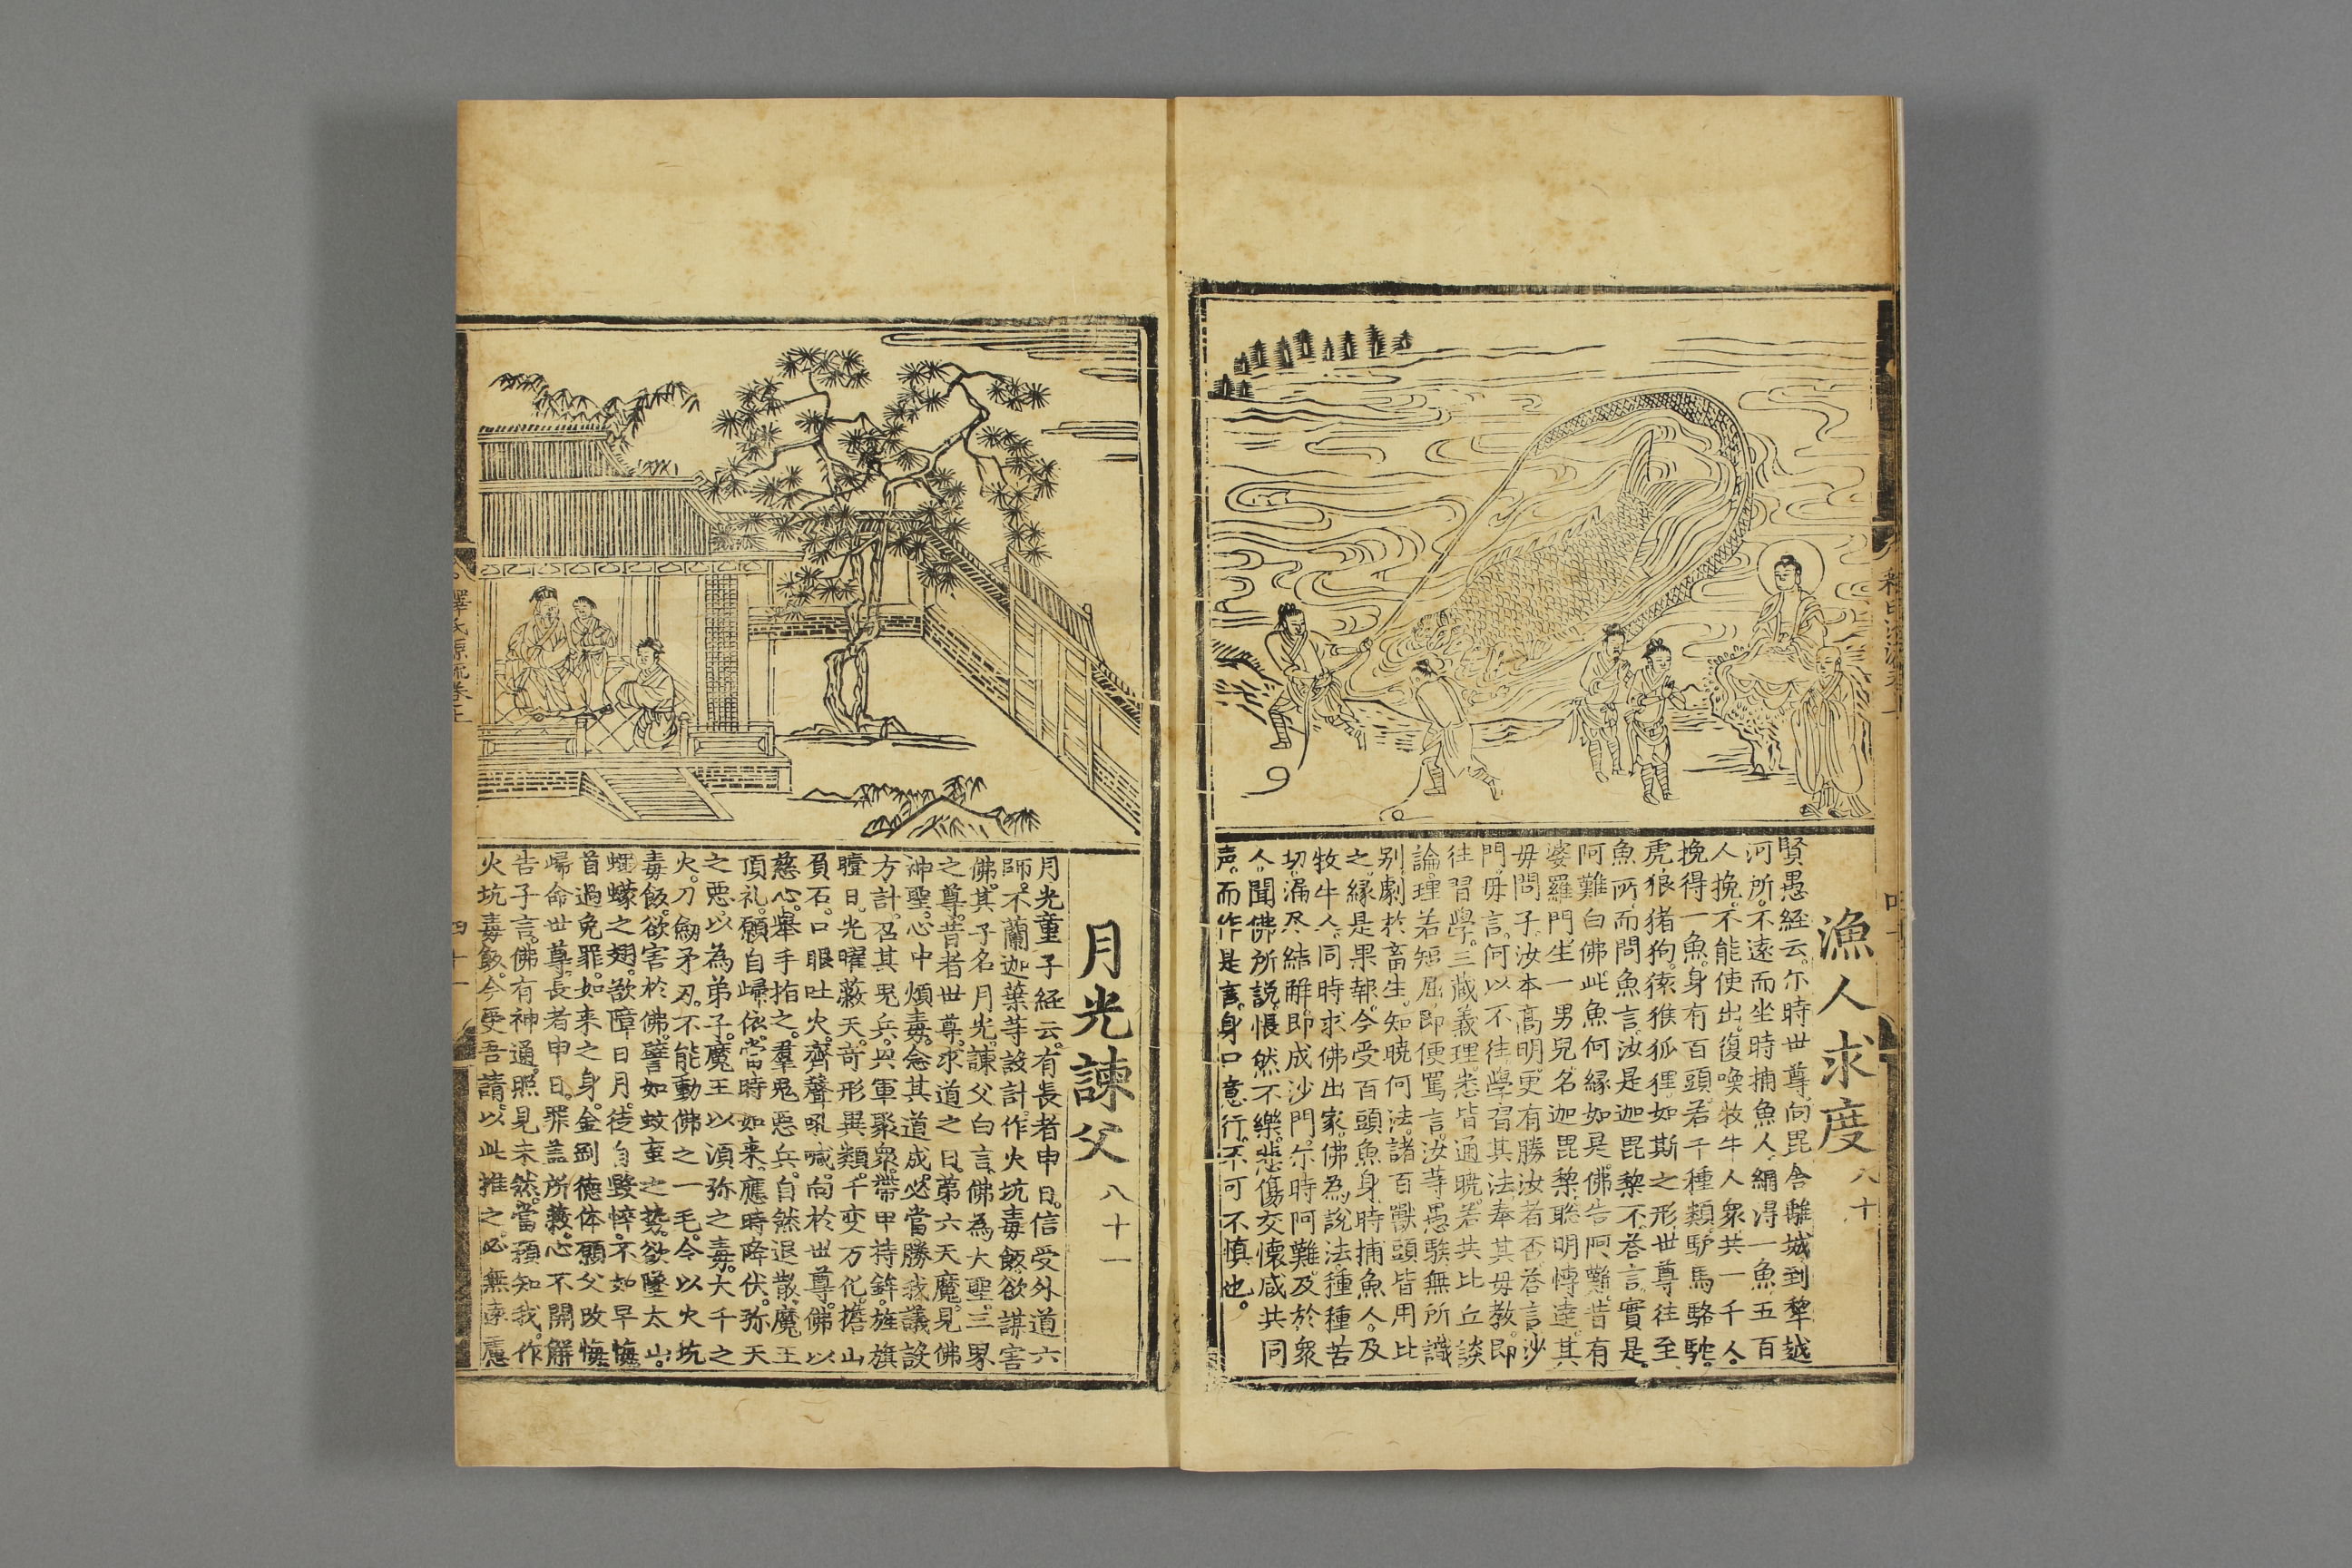 漁人求度 八十
賢愚経云尓時世尊向毘舎離城到犂越
河所不遠而坐時捕魚人網得一魚五百
人挽不能使出復喚牧牛人衆共一千人
挽得一魚身有百頭若干種類驴馬駱駝
虎狼猪狗猿猴狐狸如斯之形世尊往至
魚所而問魚言汝是迦毘黎不荅言實是
阿難白佛此魚何縁如是佛告阿難昔有
婆羅門生一男兒名迦毘黎聡明博達其
毋問子汝本高明更有勝汝者否荅言沙
門毋言何以不往學習其法奉其毋教即
往習學三藏義理悉皆通暁若共比丘談
論理若短屈即便罵言汝等愚騃無所識
别劇於畜生知暁何法諸百獸頭皆用比
之縁是果報今受百頭魚身時捕魚人及
牧牛人同時求佛出家佛為説法種種苦
切漏尽結觧即成沙門尓時阿難及於衆
人聞佛所説悵然不樂悲傷交懐咸共同
声而作是言身口意行不可不慎也
月光諌父 八十一
月光童子経云有長者申日信受外道六
師不蘭迦葉等設計作火坑毒飯欲謀害
佛其子名月光諌父白言佛為大聖三界
之尊昔者世尊求道之日苐六天魔見佛
神聖心中煩毒念其道成必當勝我議設
方計召其鬼兵與軍聚衆帶甲持鉾旌旗
曀日光曜蔽天竒形異類千变万化擔山
負石口眼吐火齊聲吼喊向於世尊佛以
慈心舉手指之羣鬼惡兵自然退散魔王
頂礼願自歸依當時如来應時降伏弥天
之惡以為弟子魔王以湏弥之毒大千之
火刀劒矛刃不能動佛之一毛今以火坑
毒飯欲害於佛譬如蚊䖝之勢欲墜太山
蠛蠓之翅欲障日月徒自毀悴不如早悔
首過免罪如来之身金剛德体願父改悔
歸命世尊長者申日罪盖所䕶心不開解
告子言佛有神通照見未然當預知我作
火坑毒飯今受吾請以此推之必無遠慮
釋氏源流卷上
四十一